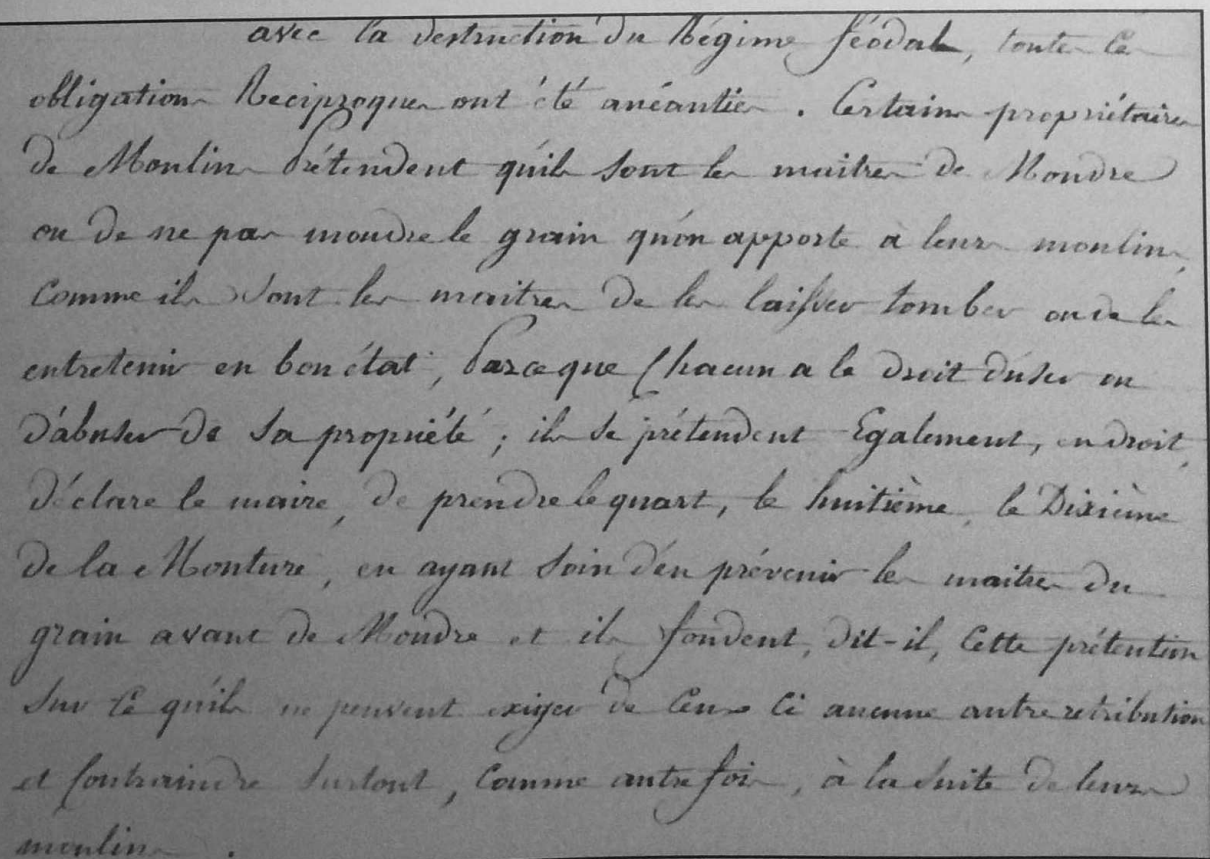 avec la destruction du Régime féodal, toutes les
obligations Reciproques ont été anéanties. Certains propriétaires
de Moulins Prétendent qu'ils sont les maitres de Moudre
ou de ne pas moudre le grain qu'on apporte à leurs moulins,
Comme ils sont les maitres de les laisser tomber ou de les
entretenir en bon état, Parceque Chacun a le droit d'user ou
d'abuser de sa propriété; ils se prétendent Egalement, en droit,
déclare le maire, de prendre le quart, le huitième, le Dixième
de la Monture, en ayant soin d'en prévenir les maitres du
grain avant de Moudre et ils fondent, dit-il, Cette prétention
sur ce qu'ils ne peuvent exiger de Ceux Ci aucune autre retribution
et Contraindre surtout, Comme autrefois, à la suite de leurs
moulins.